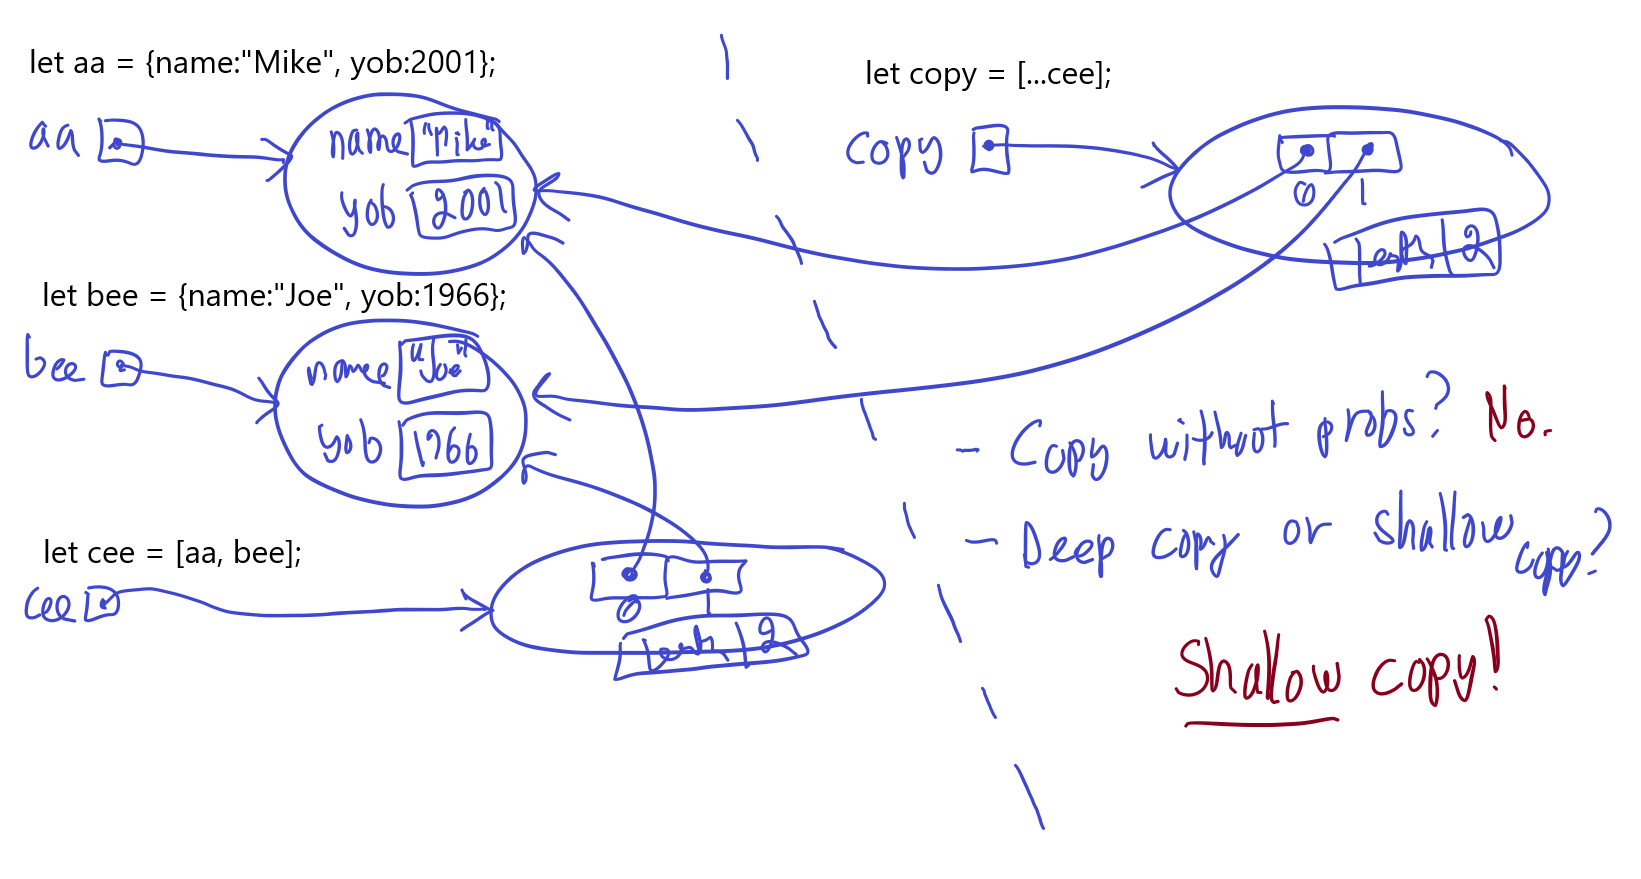 let aa = {name:"Mike", yob:2001};
aa
name "Mike"
yob 2001
let bee = {name:"Joe", yob:1966};
bee
name "Joe"
yob 1966
let cee = [aa, bee];
cee
0 1
length 2
let copy = [...cee];
copy
0 1
length 2
- Copy without probs? No.
- Deep copy or shallow copy?
Shallow copy!